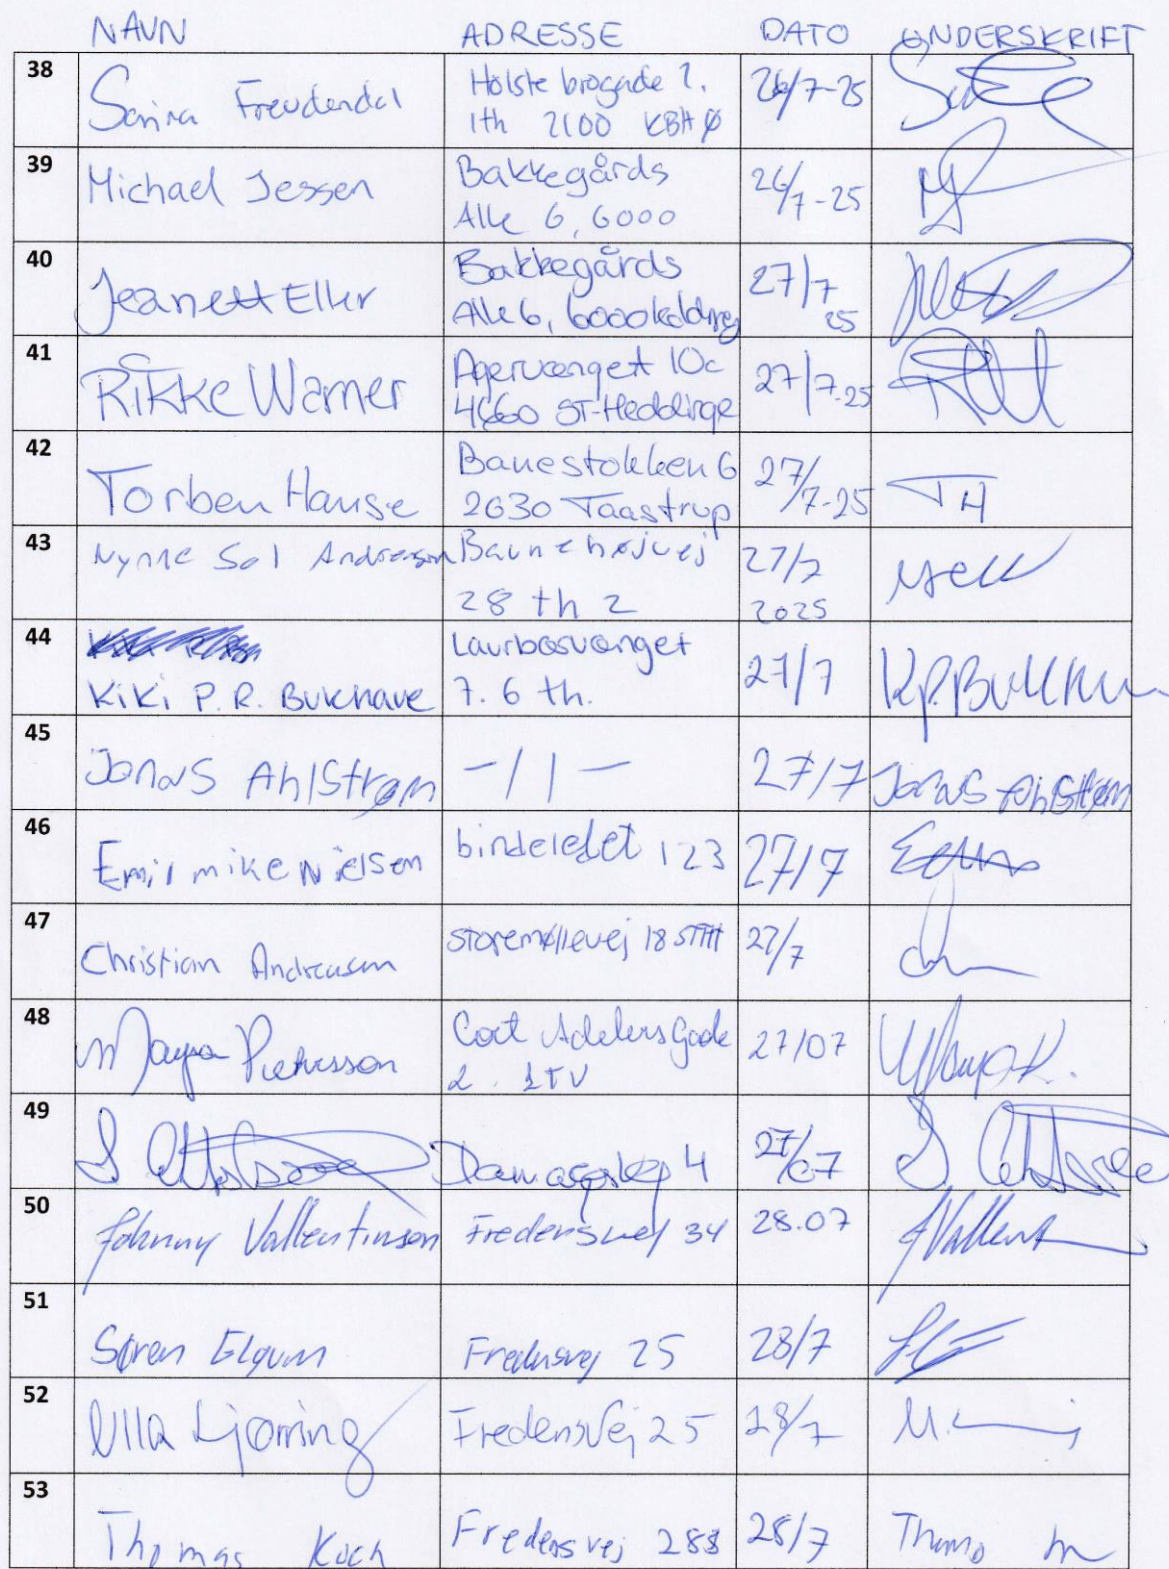 NAVN ADRESSE DATO UNDERSKRIFT
38 Sanina Freudendal Holstebrogade 2. 26/7-25
1th 2100 KBH Ø
39 Michael Jessen Bakkegårds 26/7-25 MJ
Alle 6, 6000
40 Jeanett Eller Bakkegårds 27/7
Alle 6, 6000 kolding 25
41 Rikke Warner Agervænget 10c 27/7-25
4660 ST-Heddinge
42 Torben Hansen Banestokken 6 27/7-25 TH
2630 Taastrup
43 Nynne Sol Andreasen Baunehøjvej 27/7
28 th 2 2025
44 Laurbærvænget
Kiki P. R. Bukhave 7. 6 th. 27/7 K.P.Bukhave
45 Jonas Ahlstrøm -//- 27/7 Jonas Ahlstrøm
46 Emil mike Nielsen bindeledet 123 27/7
47 Christian Andreasen storemøllevej 18 STTH 27/7
48 Maya Pietersson Cort Adelers Gade 27/07
2. 1TV
49 27/07
50 Johnny Vallentinsen Fredensvej 34 28.07 JVallent
51 Søren Elgum Fredensvej 25 28/7
52 Ulla Ljørring Fredensvej 25 28/7
53 Thomas Koch Fredensvej 28 28/7 Thomas